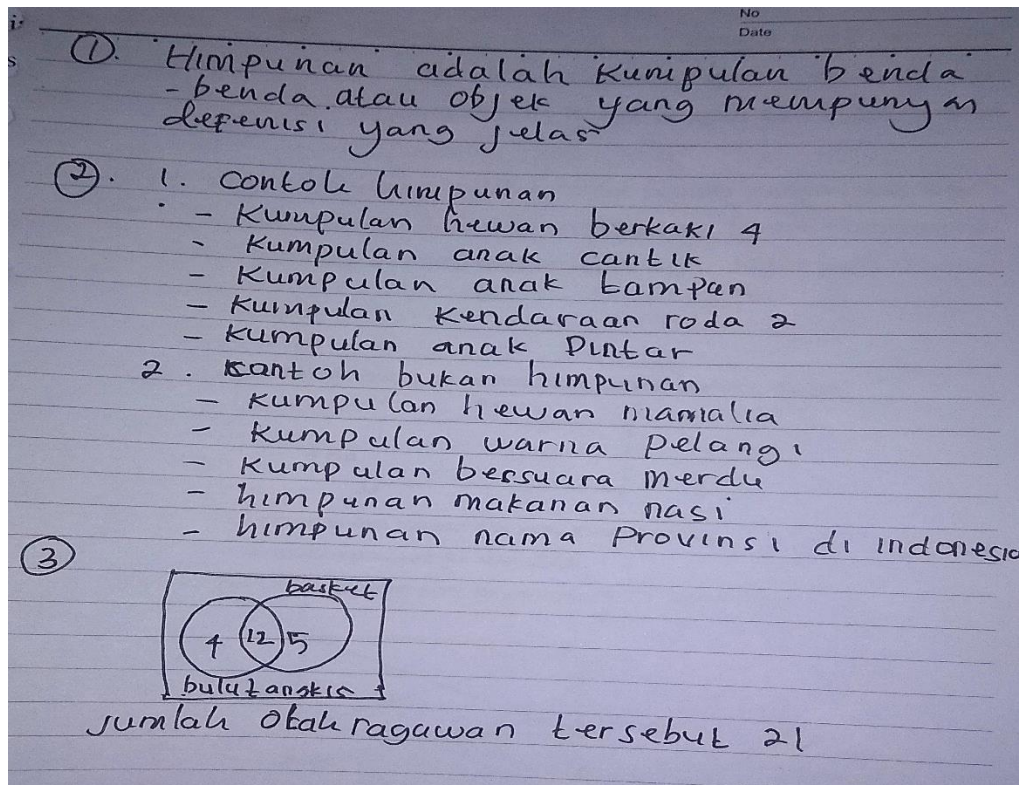 No
Date
①. Himpunan adalah kumpulan benda
- benda atau objek yang mempunyai
defenisi yang jelas
②. 1. Contoh himpunan
- Kumpulan hewan berkaki 4
- Kumpulan anak cantik
- Kumpulan anak tampan
- Kumpulan kendaraan roda 2
- Kumpulan anak Pintar
2. Contoh bukan himpunan
- Kumpulan hewan mamalia
- Kumpulan warna Pelangi
- Kumpulan bersuara merdu
- himpunan makanan nasi
- himpunan nama Provinsi di indonesia
③
basket
4 12 5
bulutangkis
jumlah olah ragawan tersebut 21